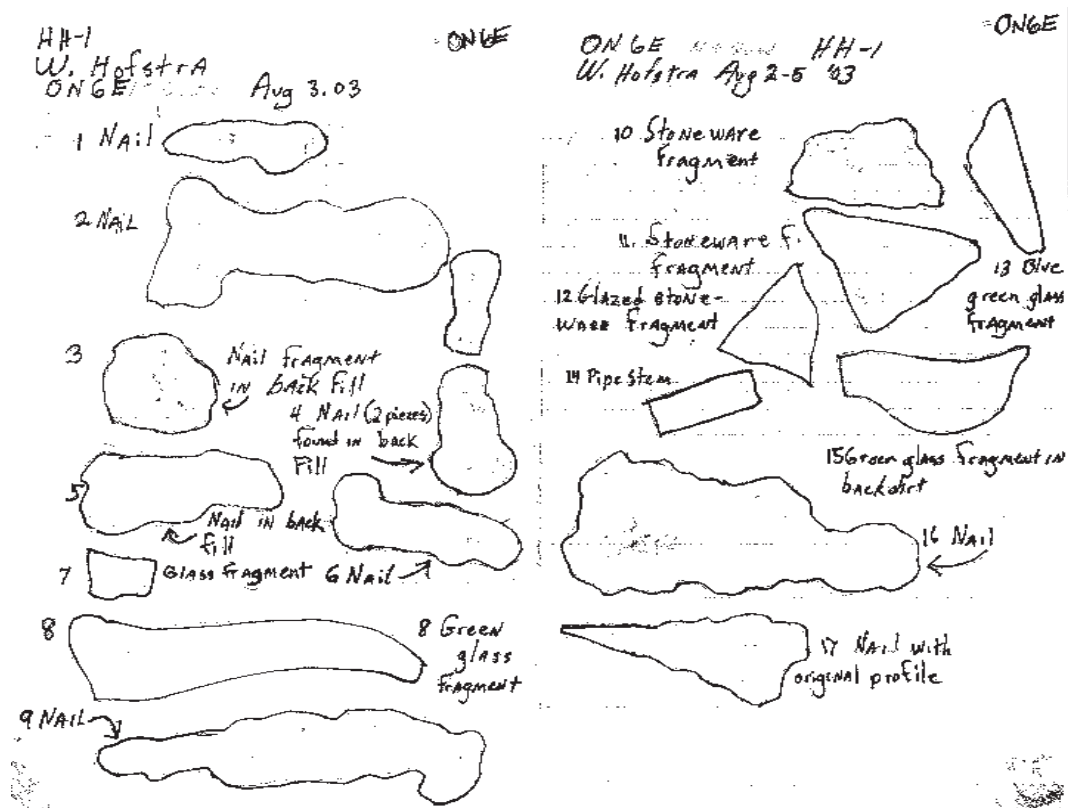 HH-1
ONGE
W. HofstrA
ONGE
Aug 3.03
1 NAil
2 NAiL
3
Nail fragment
in back fill
4 NAil (2 pieces)
found in back
Fill
5
NAil in back
fill
6 NAil
7
Glass fragment
8
8 Green
glass
fragment
9 NAil
ONGE
ONGE
HH-1
W. Hofstra Aug 2-5 '03
10 Stoneware
fragment
11. Stoneware f.
fragment
12 Glazed stone-
ware fragment
13 Blue
green glass
fragment
14 Pipe Stem
15 Green glass fragment in
backdirt
16 NAil
17 NAil with
original profile